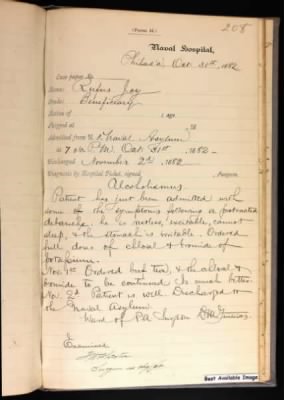 208
(Form 14.)
Naval Hospital,
Philad'a Oct 31st, 1882
Case paper No.
Name: Rufus Joy
Rank: Beneficiary
Native of ; age
Shipped at , 18
Admitted from U.S. Naval Asylum
at 7 P.M. Oct 31st 1882
Discharged November 2nd, 1882
Diagnosis by Hospital Ticket, signed , Surgeon.
Alcoholismus
Patient has just been admitted with
some of the symptoms following a protracted
debauch. he is restless, excitable, cannot
sleep, & the stomach is irritable. Ordered
full doses of chloral & bromide of
potassium.
Nov. 1st Ordered beef tea, & the chloral &
bromide to be continued. Is much better
No. 2d Patient is well. Discharged to
the Naval Asylum.
Ward of P.A. Surgeon
Examined
Surgeon
Best Available Image